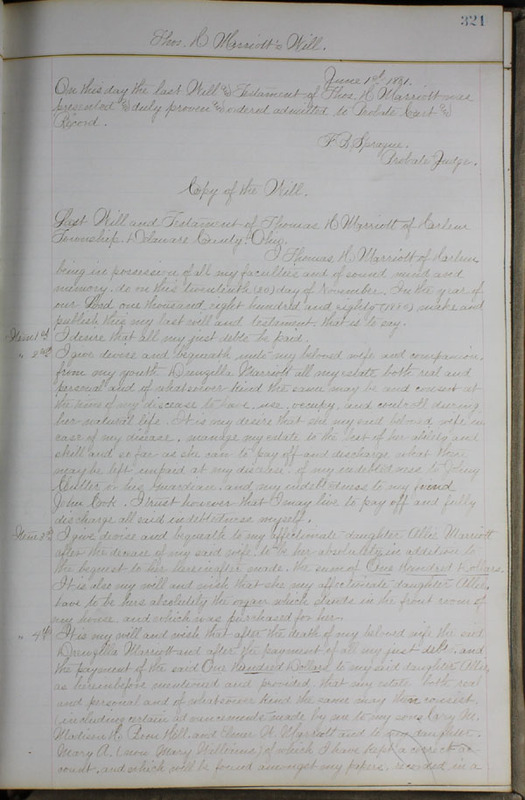 321
Thos. R Marriott's Will.
June 1st 1881.
On this day the last Will & Testament of Thos. R Marriott was
presented & duly proven & ordered admitted to Probate Court &
Record.
F. B. Sprague.
Probate Judge.
Copy of the Will.
Last Will and Testament of Thomas R Marriott of Harlem
Township, Delaware County, Ohio.
I Thomas R. Marriott of Harlem
being in possession of all my faculties and of sound mind and
memory. do on this twentieth (20) day of November. In the year of
our Lord one thousand eight hundred and eighty (1880) make and
publish this my last will and testament. that is to say.
Item 1st I desire that all my just debts be paid.
" 2nd I give devise and bequeath unto my beloved wife and companion
from my youth Druzilla Marriott all my estate both real and
personal and of whatsoever kind the same may be and consist at
the time of my disease to have, use, occupy, and controll during
her natural life. It is my desire that she my said beloved wife in
case of my disease, manage my estate to the best of her ability and
shall and so far as she can to pay off and discharge what then
may be left unpaid at my disease, of my indebtedness to
Cutler or his Guardian. and my indebtedness to my friend
John Cook. I trust however that I may live to pay off and fully
discharge all said indebtedness myself.
Item 3rd I give devise and bequeath to my affectionate daughter Allie Marriott
after the decease of my said wife, to be hers absolutely in addition to
the bequest to her hereinafter made. the sum of One Hundred Dollars.
It is also my will and wish that she my affectionate daughter Allie,
have to be hers absolutely the organ which stands in the front room of
my house and which was purchased for her.
" 4th It is my will and wish that after the death of my beloved wife the said
Druzilla Marriott and after the payment of all my just debts. and
the payment of the said One Hundred Dollars to my said daughter Allie,
as hereinbefore mentioned and provided, that my estate both real
and personal and of whatsoever kind the same may then consist.
(including certain advancements made by me to my sons Cary M.
Madison R. Hill and Elmer W. Marriott and to my daughter
Mary A. (now Mary Williams) of which I have kept a correct ac-
count, and which will be found amongst my papers, recorded in a